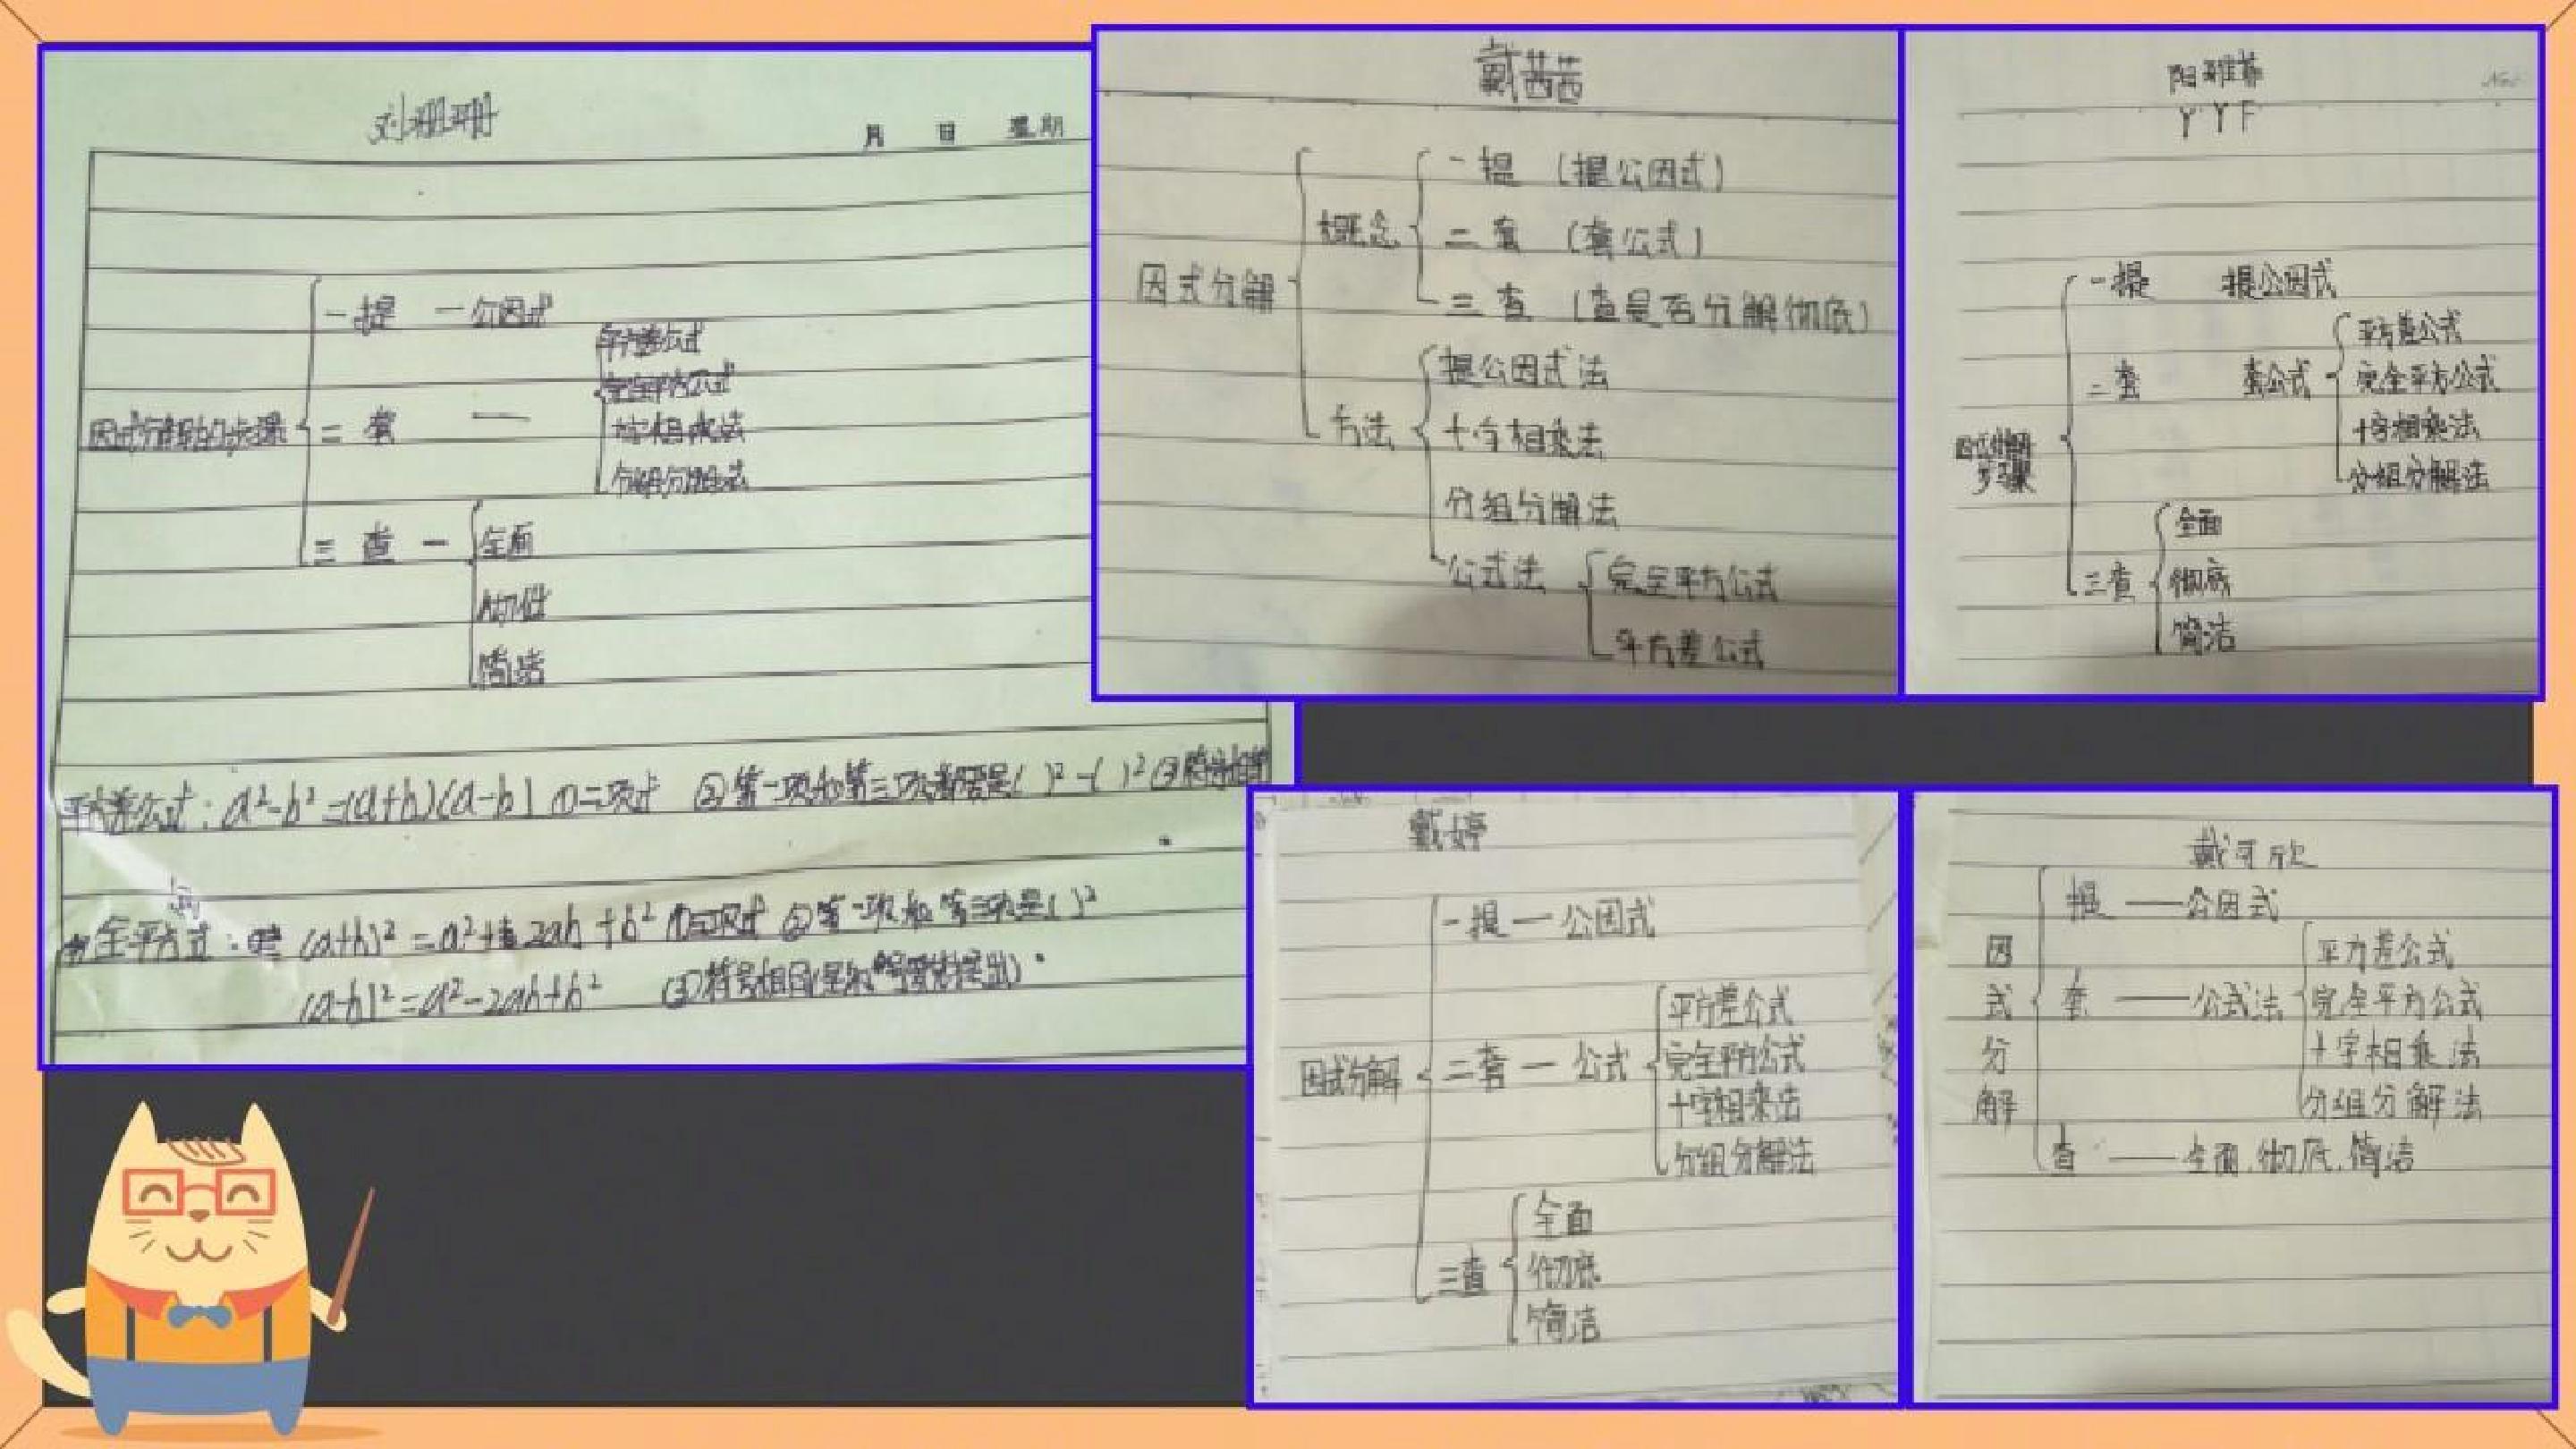 刘珊珊
月 日 星期
因式分解的步骤
一提 一 公因式
二套 一
平方差公式
完全平方公式
十字相乘法
分组分解法
三查 一
全面
彻底
简洁
平方差公式：a²-b²=(a+b)(a-b) ①二项式 ②第一项和第二项都要是( )²-( )² ③
全平方式： (a+b)²=a²+2ab+b² ①三项式 ②第一项和第三项是( )²
(a-b)²=a²-2ab+b² ③符号相同
戴茜茜
因式分解
概念
一提 (提公因式)
二套 (套公式)
三查 (查是否分解彻底)
方法
提公因式法
十字相乘法
分组分解法
公式法
完全平方公式
平方差公式
阳雅菲
YYF
因式分解步骤
一提 提公因式
二套 套公式
平方差公式
完全平方公式
十字相乘法
分组分解法
三查
全面
彻底
简洁
戴婷
因式分解
一提 一 公因式
二套 一 公式
平方差公式
完全平方公式
十字相乘法
分组分解法
三查
全面
彻底
简洁
戴可欣
因式分解
提 —— 公因式
套 —— 公式法
平方差公式
完全平方公式
十字相乘法
分组分解法
查 —— 全面,彻底,简洁